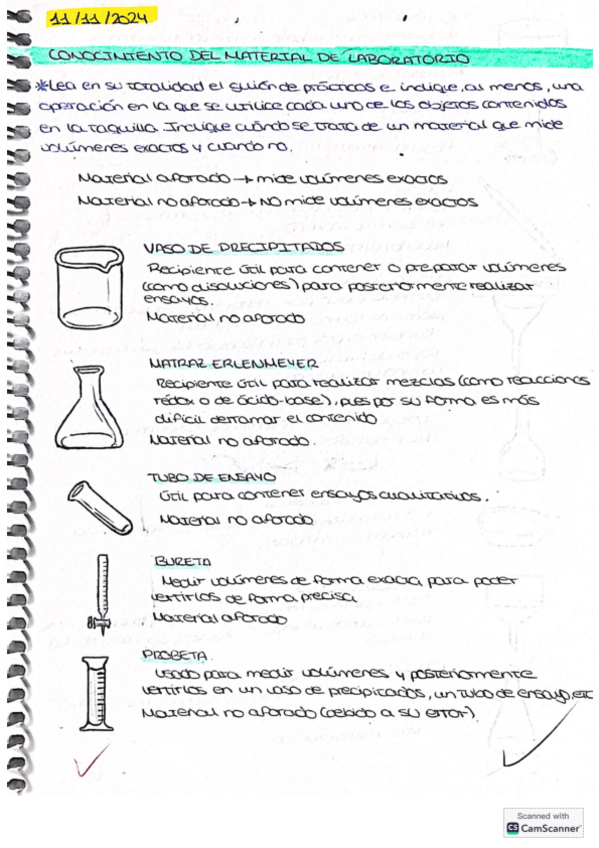 11/11/2024
CONOCIMIENTO DEL MATERIAL DE LABORATORIO
*Lea en su totalidad el guión de prácticas e indique, al menos, una
operación en la que se utilice cada uno de los objetos contenidos
en la taquilla. Indique cuándo se trata de un material que mide
volúmenes exactos y cuando no.
Material aforado → mide volúmenes exactos
Material no aforado → NO mide volúmenes exactos
VASO DE PRECIPITADOS
Recipiente útil para contener o preparar volúmenes
(como disoluciones) para posteriormente realizar
ensayos.
Material no aforado
MATRAZ ERLENMEYER
Recipiente útil para realizar mezclas (como reacciones
rédox o de ácido-base), pues por su forma es más
difícil derramar el contenido
Material no aforado.
TUBO DE ENSAYO
Útil para contener ensayos cualitativos.
Material no aforado
BURETA
Medir volúmenes de forma exacta, para poder
vertirlos de forma precisa
Material aforado
PROBETA.
Usado para medir volúmenes y posteriormente
vertirlos en un vaso de precipitados, un tubo de ensayo, etc
Material no aforado (debido a su error).
Scanned with
CS CamScanner